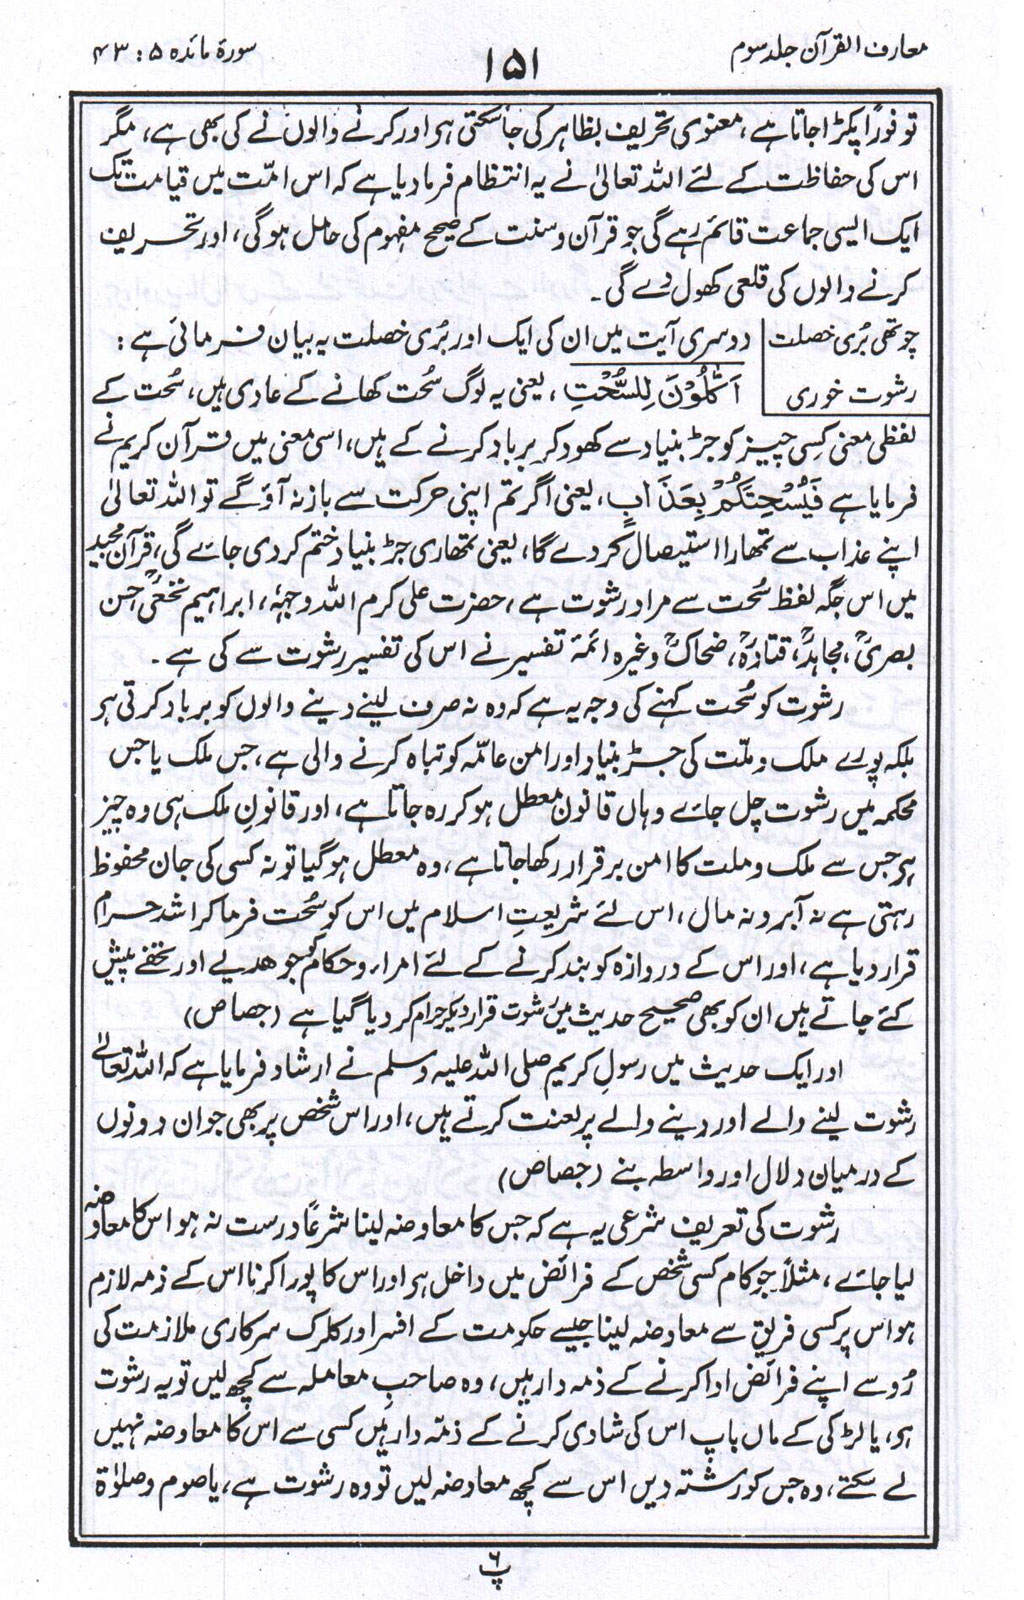 معارف القرآن جلد سوم
۱۵۱
سورۃ مائدہ ۵ : ۴۳
تو فوراً پکڑا جاتا ہے، معنوی تحریف بظاہر کی جا سکتی ہر اور کرنے والوں نے کی بھی ہے، مگر
اس کی حفاظت کے لئے اللہ تعالیٰ نے یہ انتظام فرما دیا ہے کہ اس امّت میں قیامت تک
ایک ایسی جماعت قائم رہے گی جو قرآن و سنت کے صحیح مفہوم کی حامل ہوگی، اور تحریف
کرنے والوں کی قلعی کھول دے گی۔
چوتھی بُری خصلت
رشوت خوری
دوسری آیت میں ان کی ایک اور بُری خصلت یہ بیان فرمائی ہے :
اَکّٰلُوْنَ لِلسُّحْتِ، یعنی یہ لوگ سُحت کھانے کے عادی ہیں، سُحت کے
لفظی معنی کسِی چیز کو جڑ بنیاد سے کھود کر برباد کرنے کے ہیں، اسی معنی میں قرآن کریم نے
فرمایا ہے فَیُسْحِتَکُمْ بِعَذَابٍ، یعنی اگر تم اپنی حرکت سے باز نہ آؤ گے تو اللہ تعالیٰ
اپنے عذاب سے تمھارا استیصال کر دے گا، یعنی تمھاری جڑ بنیاد ختم کر دی جاۓ گی، قرآن مجید
میں اس جگہ لفظ سُحت سے مراد رشوت ہے، حضرت علی کرم اللہ وجہہٗ، ابراہیم نخعیؒ، حسن
بصریؒ، مجاہدؒ، قتادہؒ، ضحاکؒ وغیرہ ائمۂ تفسیر نے اس کی تفسیر رشوت سے کی ہے۔
رشوت کو سُحت کہنے کی وجہ یہ ہے کہ وہ نہ صرف لینے دینے والوں کو برباد کرتی ہر
بلکہ پورے ملک و ملّت کی جڑ بنیاد اور امن عامّہ کو تباہ کرنے والی ہے، جس ملک یا جس
محکمہ میں رشوت چل جاۓ وہاں قانون معطل ہو کر رہ جاتا ہے، اور قانونِ ملک ہی وہ چیز
ہر جس سے ملک و ملت کا امن برقرار رکھا جاتا ہے، وہ معطل ہوگیا تو نہ کسی کی جان محفوظ
رہتی ہے نہ آبرو نہ مال، اس لئے شریعتِ اسلام میں اس کو سُحت فرما کر اشد حرام
قرار دیا ہے، اور اس کے دروازہ کو بند کرنے کے لئے امراء و حکام کو جو ھدیے اور تحفے پیش
کئے جاتے ہیں ان کو بھی صحیح حدیث میں رشوت قرار دیکر حرام کر دیا گیا ہے (جصاص)
اور ایک حدیث میں رسولِ کریم صلی اللہ علیہ وسلم نے ارشاد فرمایا ہے کہ اللہ تعالیٰ
رشوت لینے والے اور دینے والے پر لعنت کرتے ہیں، اور اس شخص پر بھی جو ان دونوں
کے درمیان دلال اور واسطہ بنے (جصاص)
رشوت کی تعریف شرعی یہ ہے کہ جس کا معاوضہ لینا شرعًا درست نہ ہو اس کا معاوضہ
لیا جاۓ، مثلاً جو کام کسی شخص کے فرائض میں داخل ہر اور اس کا پورا کرنا اس کے ذمہ لازم
ہو اس پر کسی فریق سے معاوضہ لینا جیسے حکومت کے افسر اور کلرک سرکاری ملازمت کی
رُو سے اپنے فرائض ادا کرنے کے ذمہ دار ہیں، وہ صاحبِ معاملہ سے کچھ لیں تو یہ رشوت
ہر، یا لڑکی کے ماں باپ اس کی شادی کرنے کے ذمّہ دار ہیں کسی سے اس کا معاوضہ نہیں
لے سکتے، وہ جس کو رشتہ دیں اس سے کچھ معاوضہ لیں تو وہ رشوت ہے، یا صوم و صلوٰۃ
پ ۶